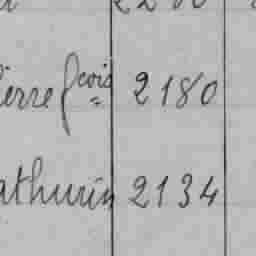 ierre fcois 2180
athurin 2134